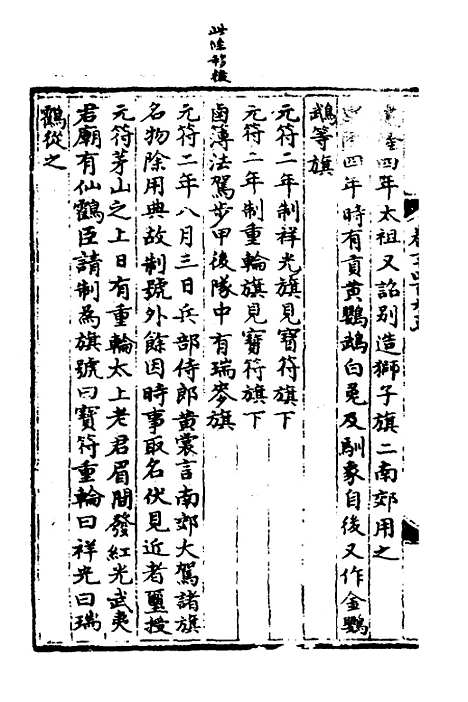 此陸移後
四年太祖又詔別造獅子旗二南郊用之
四年時有貢黃鸚鵡白兎及馴象自後又作金鸚
鵡等旗
元符二年制祥光旗見寶符旗下
元符二年制重輪旗見寶符旗下
鹵薄法駕步甲後隊中有瑞麥旗
元符二年八月三日兵部侍郎黃裳言南郊大駕諸旗
名物除用典故制號外餘因時事取名伏見近者璽授
元符茅山之上日有重輪太上老君眉間發紅光武夷
君廟有仙鶴臣請制為旗號曰寶符重輪曰祥光曰瑞
鶴從之